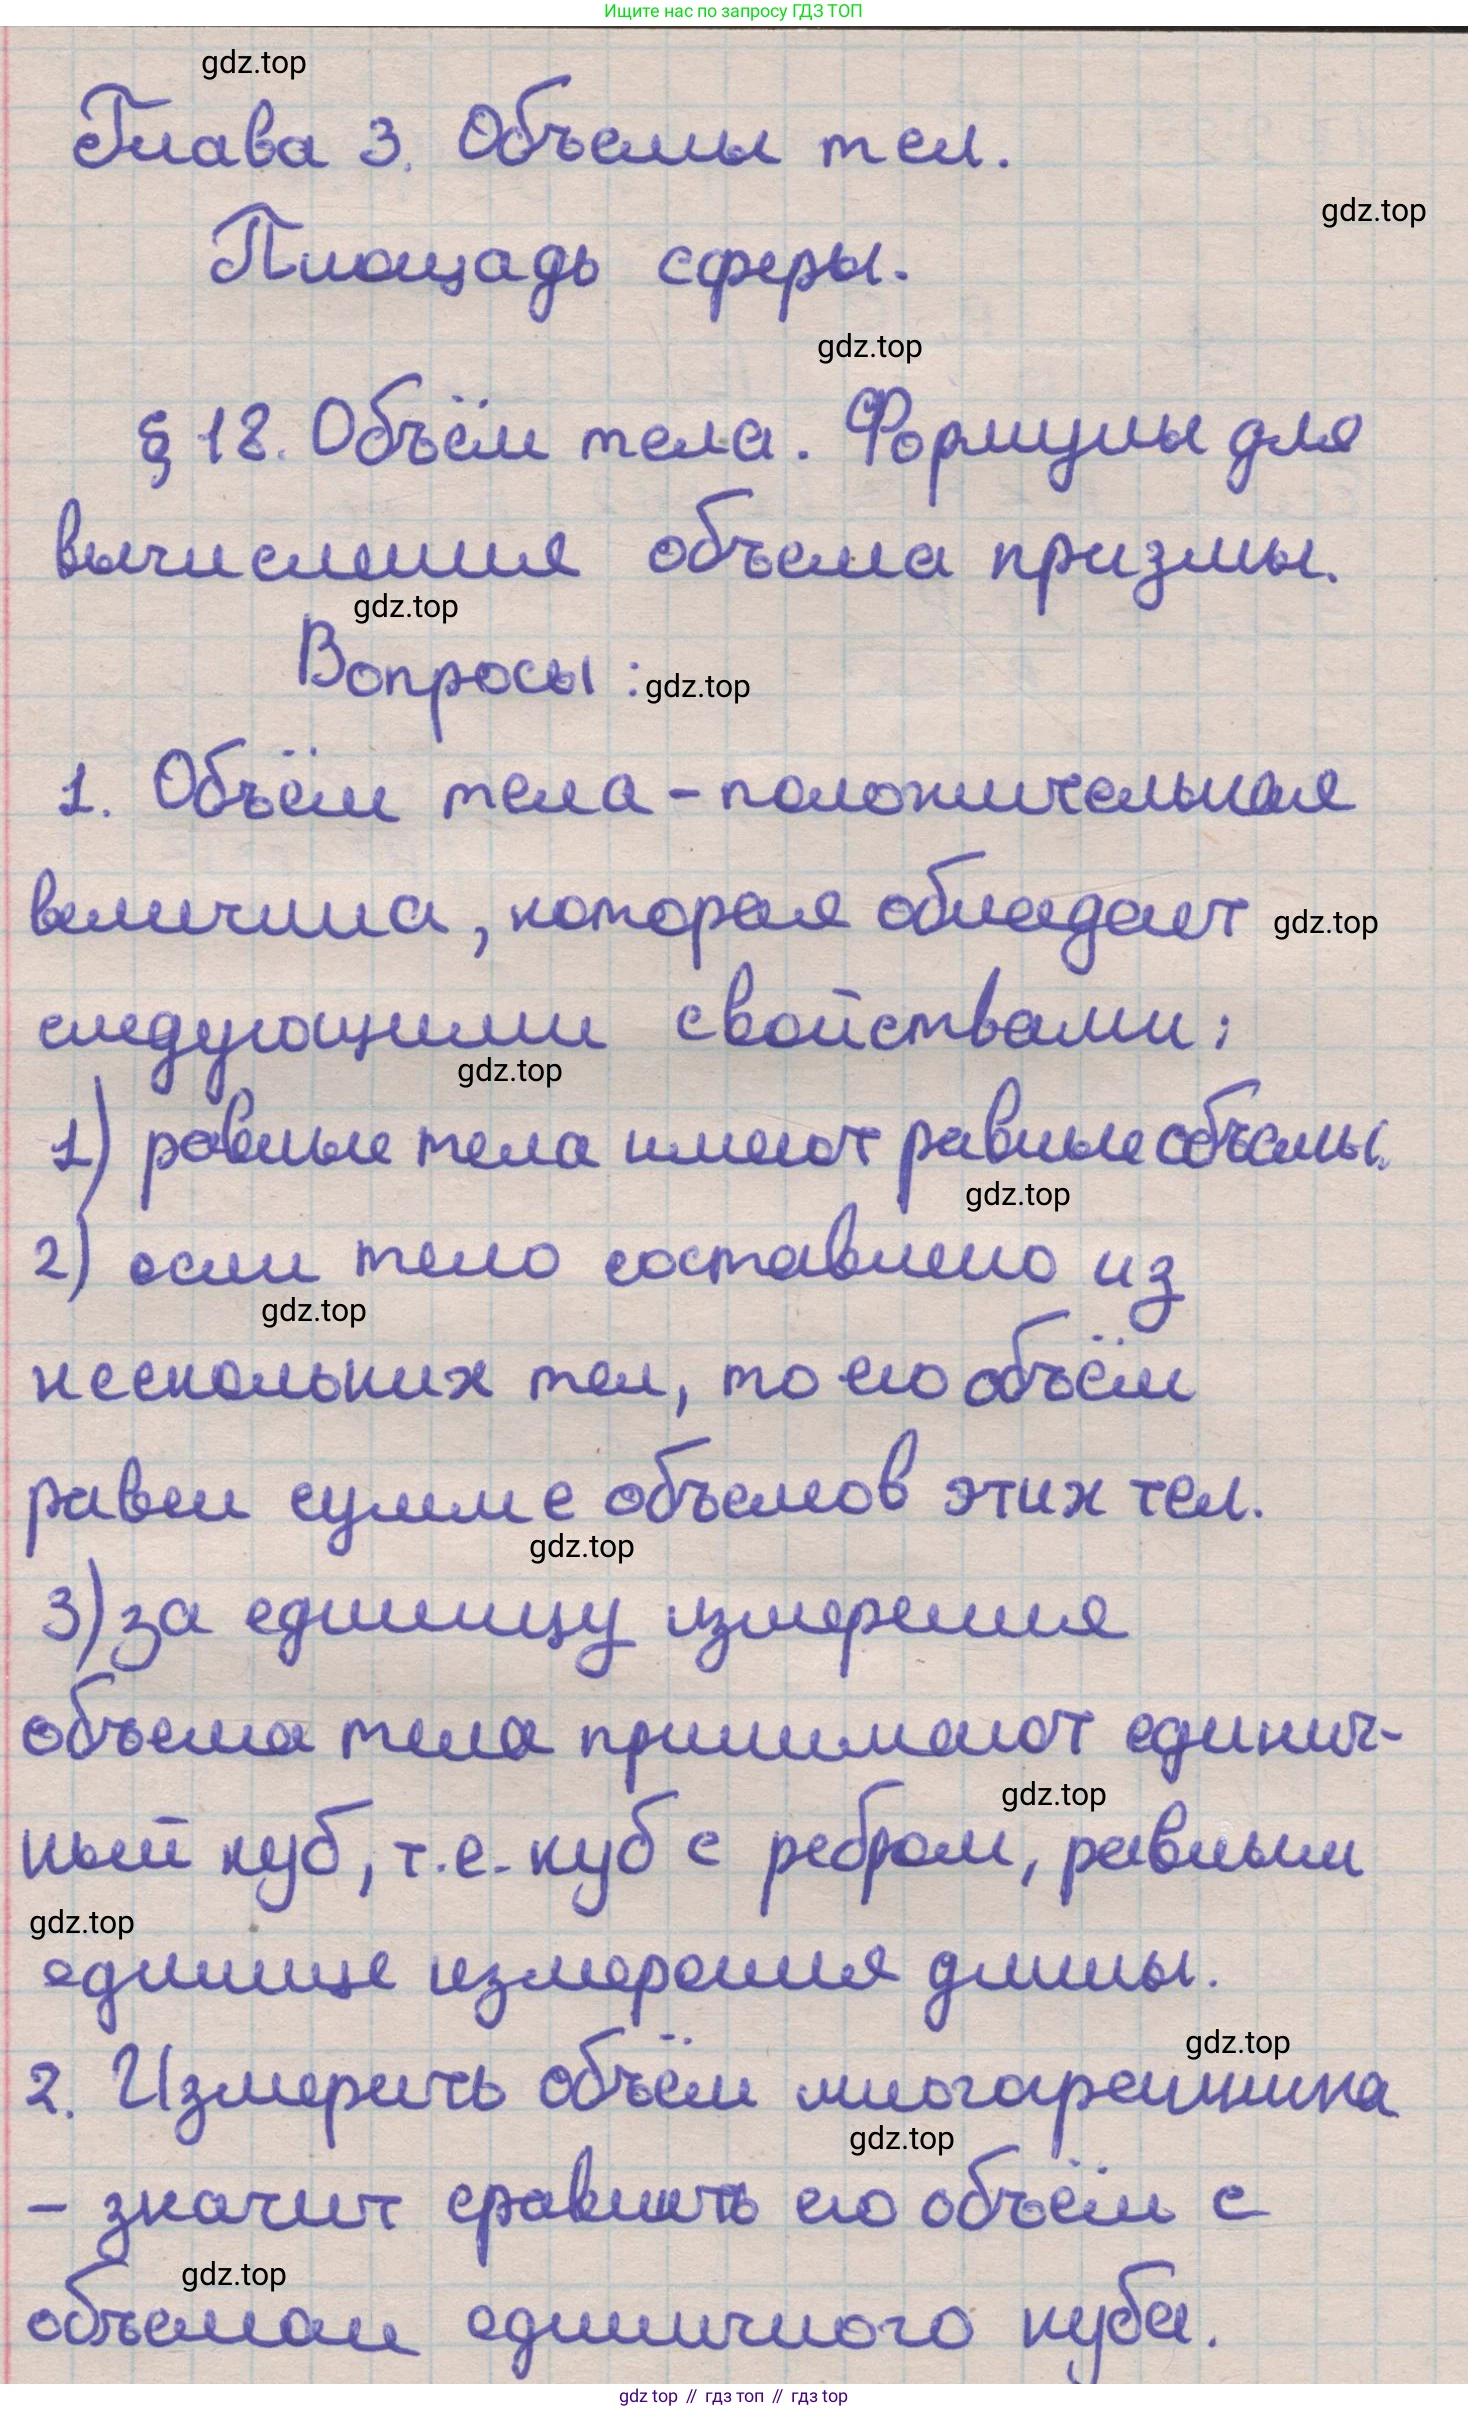 Ищите нас по запросу ГДЗ ТОП
gdz.top
Глава 3. Объемы тел.
gdz.top
Площадь сферы.
gdz.top
§ 18. Объём тела. Формулы для
вычисления объема призмы.
gdz.top
Вопросы :
gdz.top
1. Объём тела - положительная
величина, которая обладает
gdz.top
следующими свойствами:
gdz.top
1) равные тела имеют равные объемы.
gdz.top
2) если тело составлено из
gdz.top
нескольких тел, то его объём
равен сумме объемов этих тел.
gdz.top
3) за единицу измерения
объема тела принимают единич-
gdz.top
ный куб, т.е. куб с ребром, равным
gdz.top
единице измерения длины.
gdz.top
2. Измерить объём многогранника
gdz.top
- значит сравнить его объём с
gdz.top
объемом единичного куба.
gdz top // гдз топ // гдз top